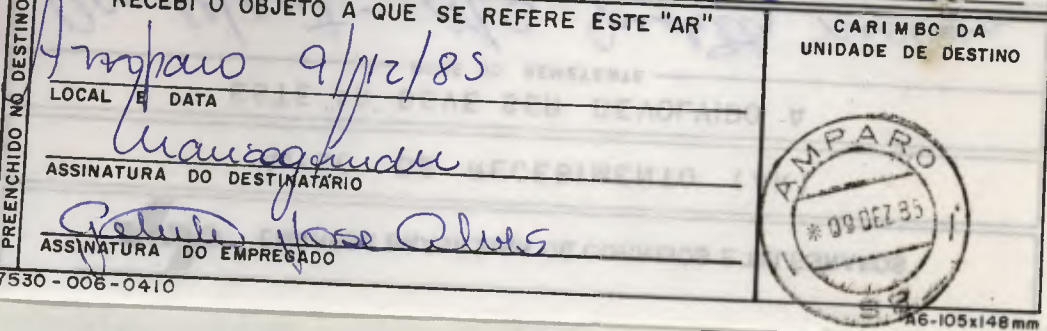 RECEBI O OBJETO A QUE SE REFERE ESTE "AR"
Amparo 9/12/85
LOCAL E DATA
ASSINATURA DO DESTINATÁRIO
Getulio Jose Alves
ASSINATURA DO EMPREGADO
7530-006-0410
PREENCHIDO NO DESTINO
CARIMBO DA
UNIDADE DE DESTINO
AMPARO
* 09 DEZ 85
SP
A6-105x148mm